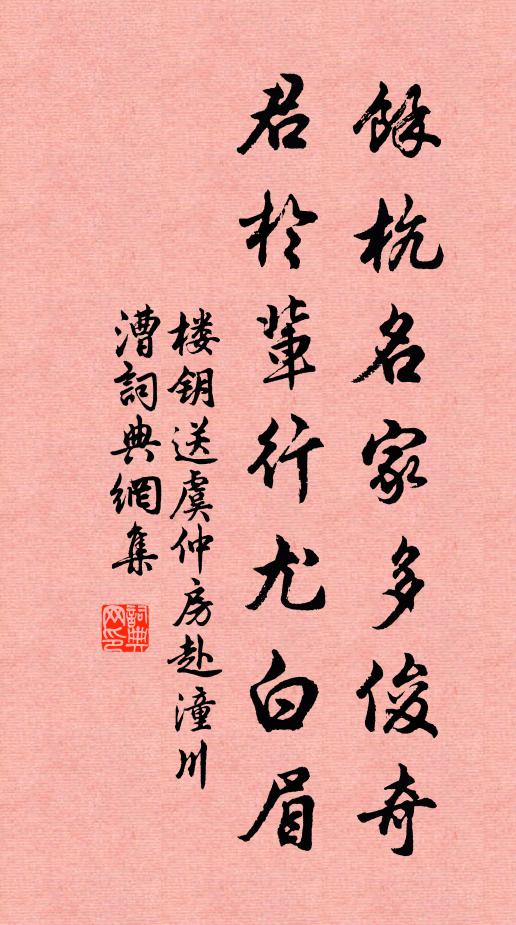 餘杭名家多俊奇
君於輩行尤白眉
楼鑰送虞仲房赴潼川
漕詞典網集
詞典网印